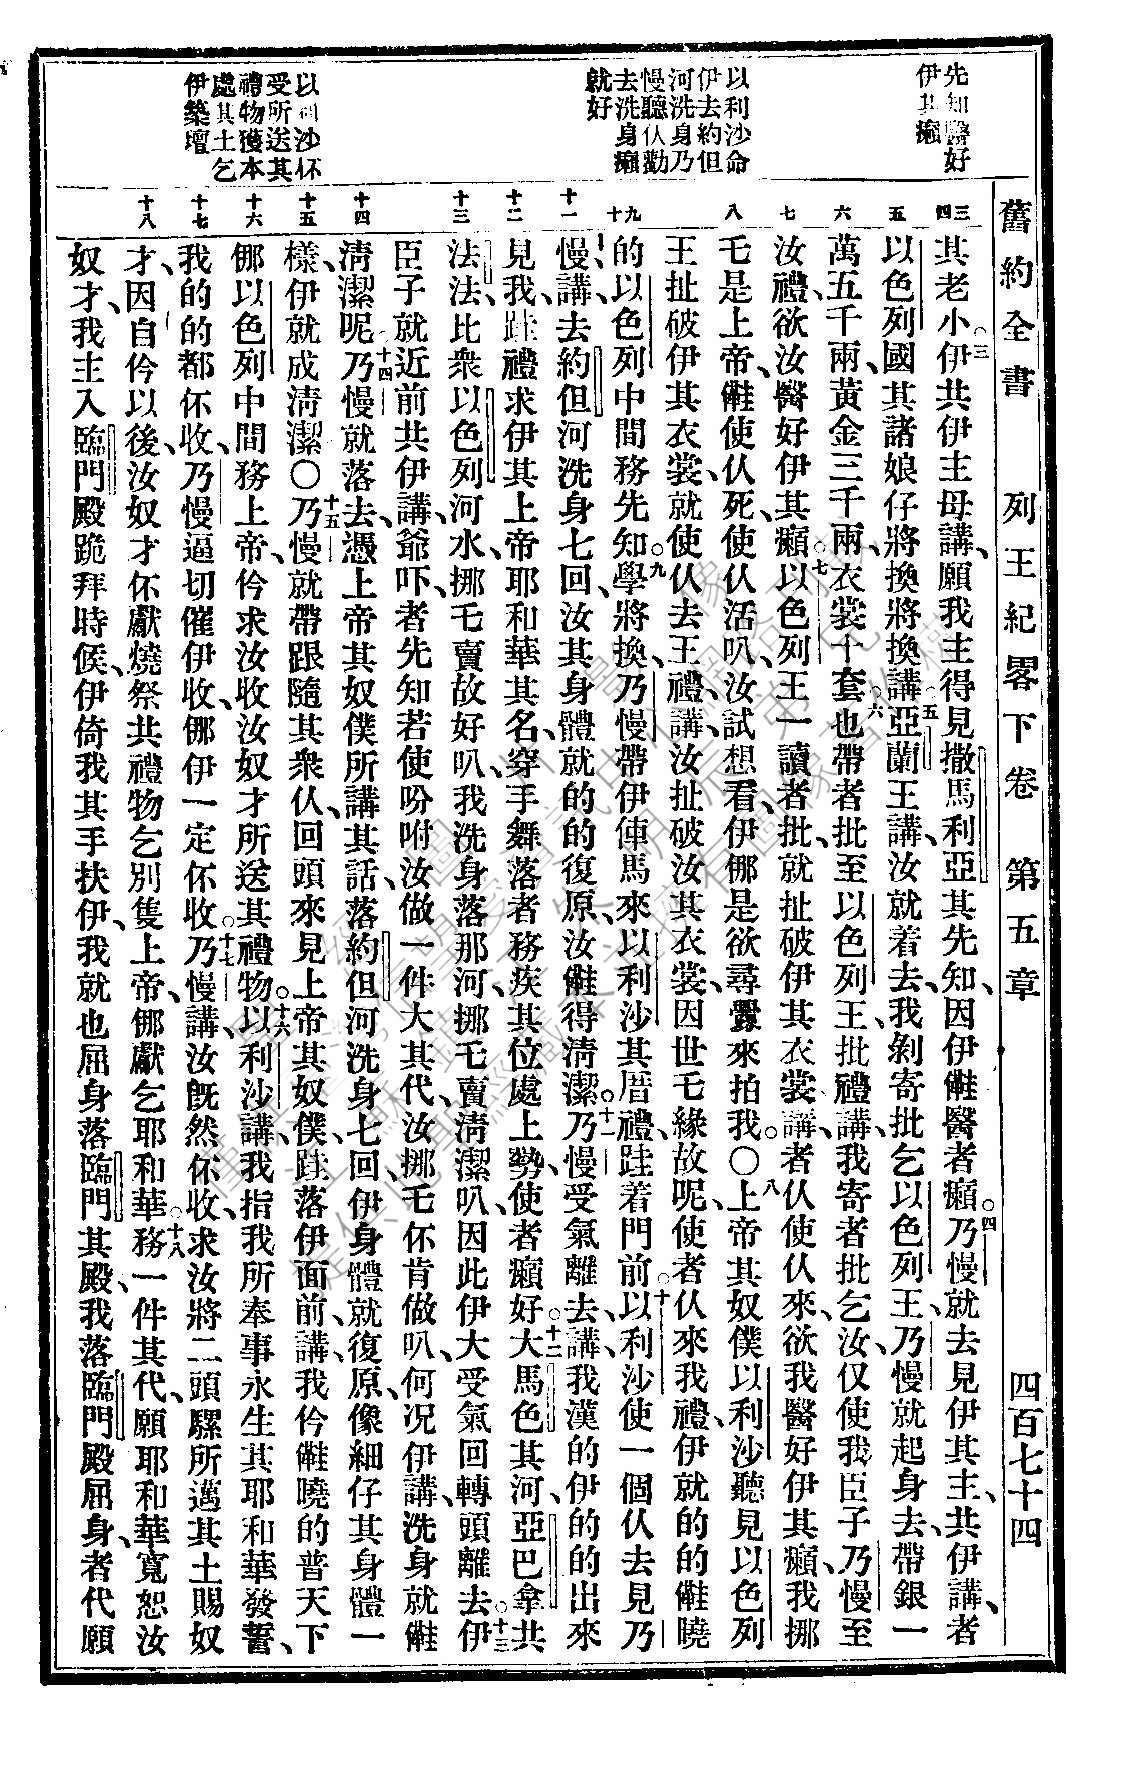 舊約全書 列王紀畧下卷 第五章 四百七十四
先知醫好
伊其癩
以利沙命
伊去約但
河洗身乃
慢聽仆勸
去洗身癩
就好
以利沙怀
受所送其
禮物獲本
處其土乞
伊築壇
三 四 五 六 七 八 九 十 十一 十二 十三 十四 十五 十六 十七 十八
其老小。三伊共伊主母講、願我主得見撒馬利亞其先知、因伊𣍐醫者癩。四乃慢就去見伊其主、共伊講、者
以色列國其諸娘仔將換將換講。五亞蘭王講、汝就着去、我剝寄批乞以色列王、乃慢就起身去、帶銀一
萬五千兩、黃金三千兩、衣裳十套。六也帶者批至以色列王、批禮講、我寄者批乞汝、仅使我臣子乃慢至
汝禮、欲汝醫好伊其癩。七以色列王一讀者批、就扯破伊其衣裳、講、者仆使仆來、欲我醫好伊其癩、我挪
乇是上帝、𣍐使仆死、使仆活叭、汝試想看、伊挪是欲尋釁來拍我。〇八上帝其奴僕以利沙聽見以色列
王扯破伊其衣裳、就使仆去王禮講、汝扯破汝其衣裳、因世乇緣故呢、使者仆來我禮、伊就的的𣍐曉
的以色列中間務先知。九學將換、乃慢帶伊俥馬來、以利沙其厝禮、跬着門前。十以利沙使一個仆去見乃
慢講、去約但河洗身七回、汝其身體就的的復原、汝𣍐得清潔。十一乃慢受氣離去、講、我漢的伊的的出來
見我、跬禮求伊其上帝耶和華其名、穿手舞落者務疾其位處上勢、使者癩好。十二大馬色其河、亞巴拿共
法法、比衆以色列河水、挪乇賣故好叭、我洗身落那河、挪乇賣清潔叭、因此伊大受氣回轉頭離去。十三伊
臣子就近前共伊講、爺吓、者先知若使吩咐汝做一件大其代、汝挪乇怀肯做叭、何况伊講、洗身就𣍐
清潔呢。十四乃慢就落去、憑上帝其奴僕所講其話、落約但河洗身七回、伊身體就復原、像細仔其身體一
樣、伊就成清潔〇十五乃慢就帶跟隨其衆仆、回頭來見上帝其奴僕、跬落伊面前、講、我仱𣍐曉的普天下
挪以色列中間務上帝、仱求汝收汝奴才所送其禮物。十六以利沙講、我指我所奉事永生其耶和華發誓、
我的的都怀收、乃慢逼切催伊收、挪伊一定怀收。十七乃慢講、汝既然怀收、求汝將二頭騾所邁其土賜奴
才、因自仱以後、汝奴才怀獻燒祭共禮物乞別隻上帝、挪獻乞耶和華。十八務一件其代、願耶和華寬恕汝
奴才、我主入臨門殿跪拜時候、伊倚我其手扶伊、我就也屈身落臨門其殿、我落臨門殿屈身、者代願